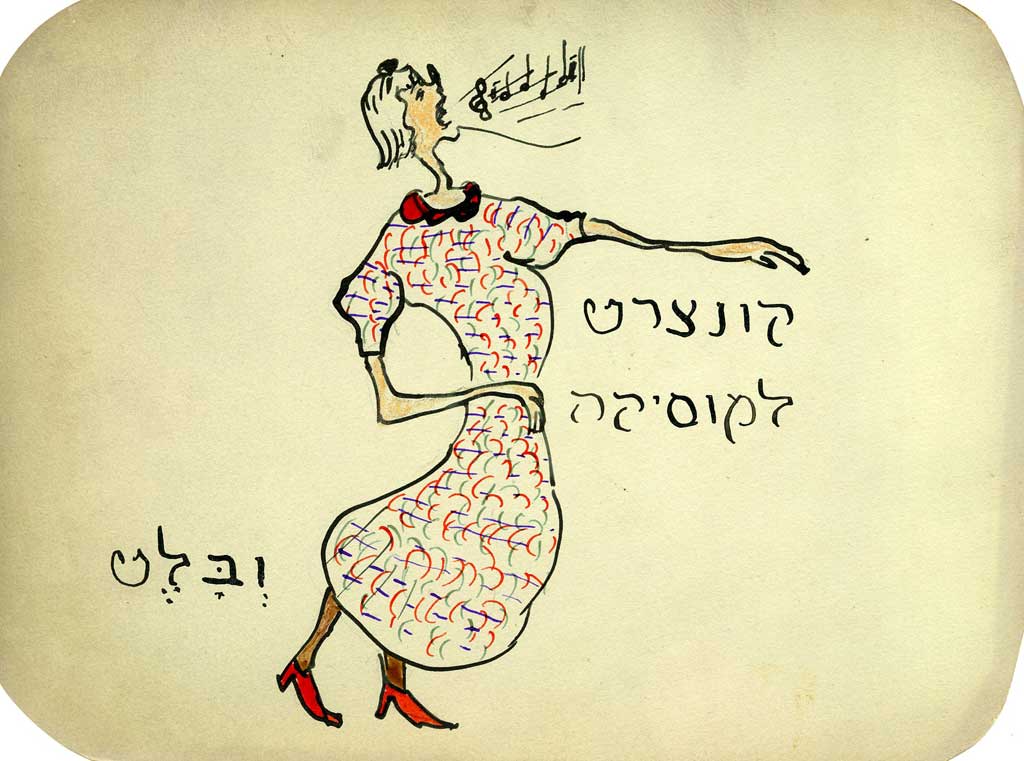 קונצרט
למוסיקה
וְבַּלֶט